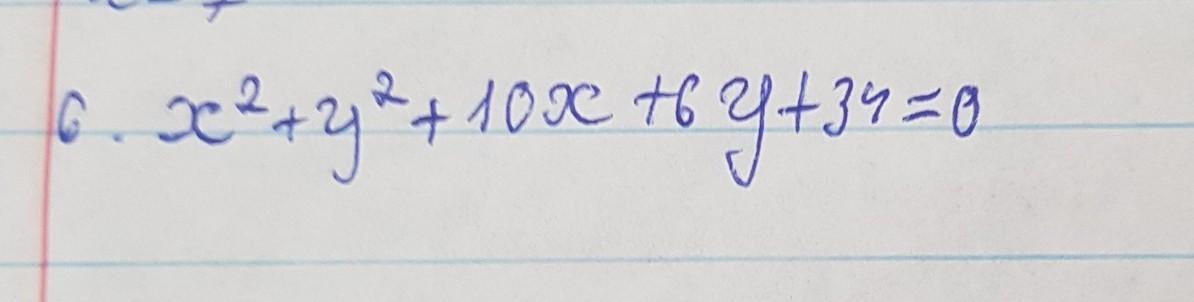 6. x²+y²+10x+6y+34=0